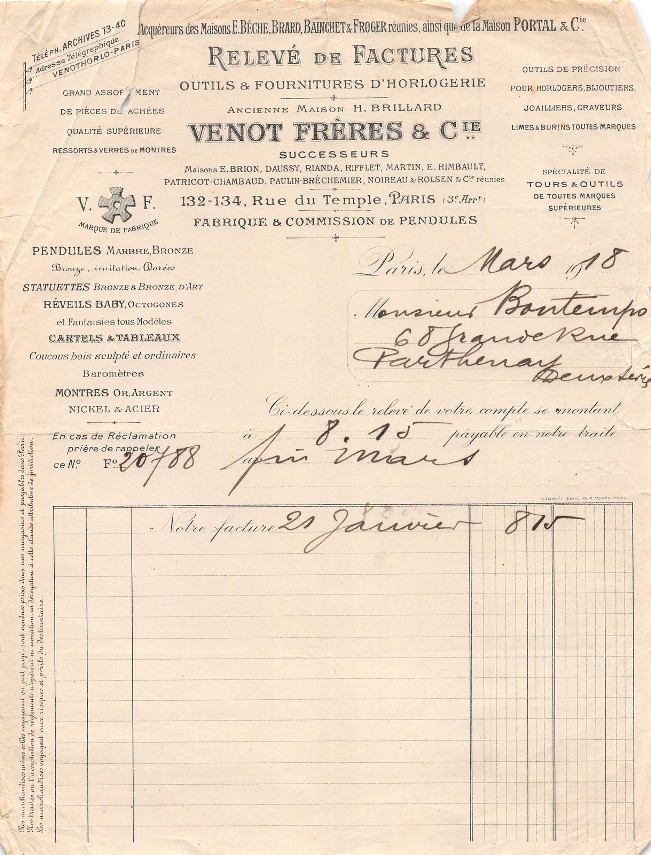 TÉLÉPH. ARCHIVES 13-40
Adresse Télégraphique
VENOTHORLO-PARIS
Acquéreurs des Maisons E. BÊCHE, BRARD, BAINCHET & FROGER réunies, ainsi que de la Maison PORTAL & Cie
RELEVÉ DE FACTURES
OUTILS & FOURNITURES D'HORLOGERIE
ANCIENNE MAISON H. BRILLARD
VENOT FRÈRES & CIE
SUCCESSEURS
Maisons E. BRION, DAUSSY, RIANDA, RIFFLET, MARTIN, E. RIMBAULT,
PATRICOT-CHAMBAUD, PAULIN-BRÉCHEMIER, NOIREAU & ROLSEN & Cie réunies
132-134, Rue du Temple, PARIS (3e Arrt)
FABRIQUE & COMMISSION DE PENDULES
GRAND ASSORTIMENT
DE PIÈCES DÉTACHÉES
QUALITÉ SUPÉRIEURE
RESSORTS & VERRES DE MONTRES
V. F.
MARQUE DE FABRIQUE
OUTILS DE PRÉCISION
POUR HORLOGERS, BIJOUTIERS,
JOAILLIERS, GRAVEURS
LIMES & BURINS TOUTES MARQUES
SPÉCIALITÉ DE
TOURS & OUTILS
DE TOUTES MARQUES
SUPÉRIEURES
PENDULES MARBRE, BRONZE
Bronze, imitation, Dorées
STATUETTES BRONZE & BRONZE D'ART
RÉVEILS BABY, OCTOGONES
et Fantaisies tous Modèles
CARTELS & TABLEAUX
Coucous bois sculpté et ordinaires
Baromètres
MONTRES OR, ARGENT
NICKEL & ACIER
En cas de Réclamation
prière de rappeler
ce No Fo 20788
Paris, le Mars 1918
Monsieur Bontemps
68 Grande Rue
Parthenay
Deux Sèvres
Ci-dessous le relevé de votre compte se montant
à 8.15 payable en notre traite
au fin Mars
Notre facture 21 Janvier 8 15